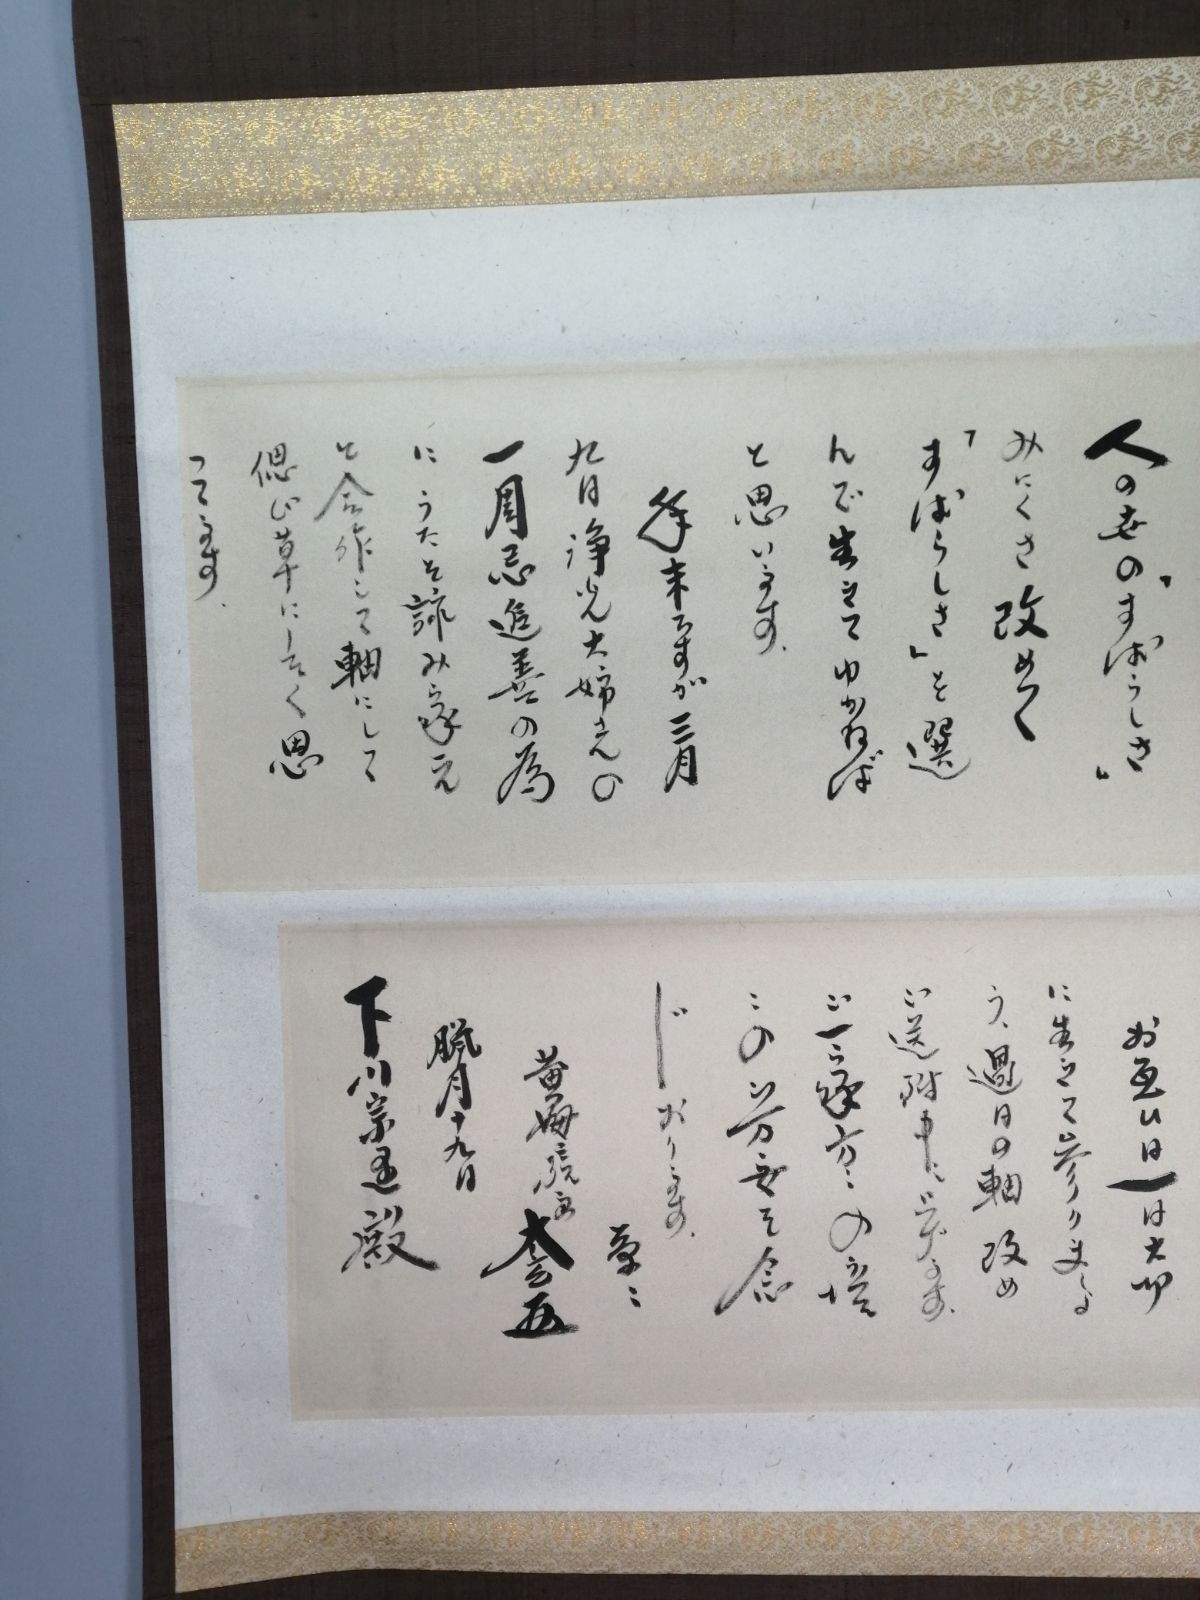 人の世の「すばらしさ」
みにくさ改めて
「すばらしさ」を選
んで生きてゆかねば
と思います、
年末ですが三月
九日浄光大姉さんの
一周忌追善の為
にうたを詠み家元
と合作して軸にして
偲び草にしたく思
ってます、
お互ひ日一日大切
に生きて参りませ
う、過日の軸改め
ご送附申し上げます、
ご一家方々の
この
じおります、
草々
黄梅院
太玄
臘月十九日
下川宗 殿